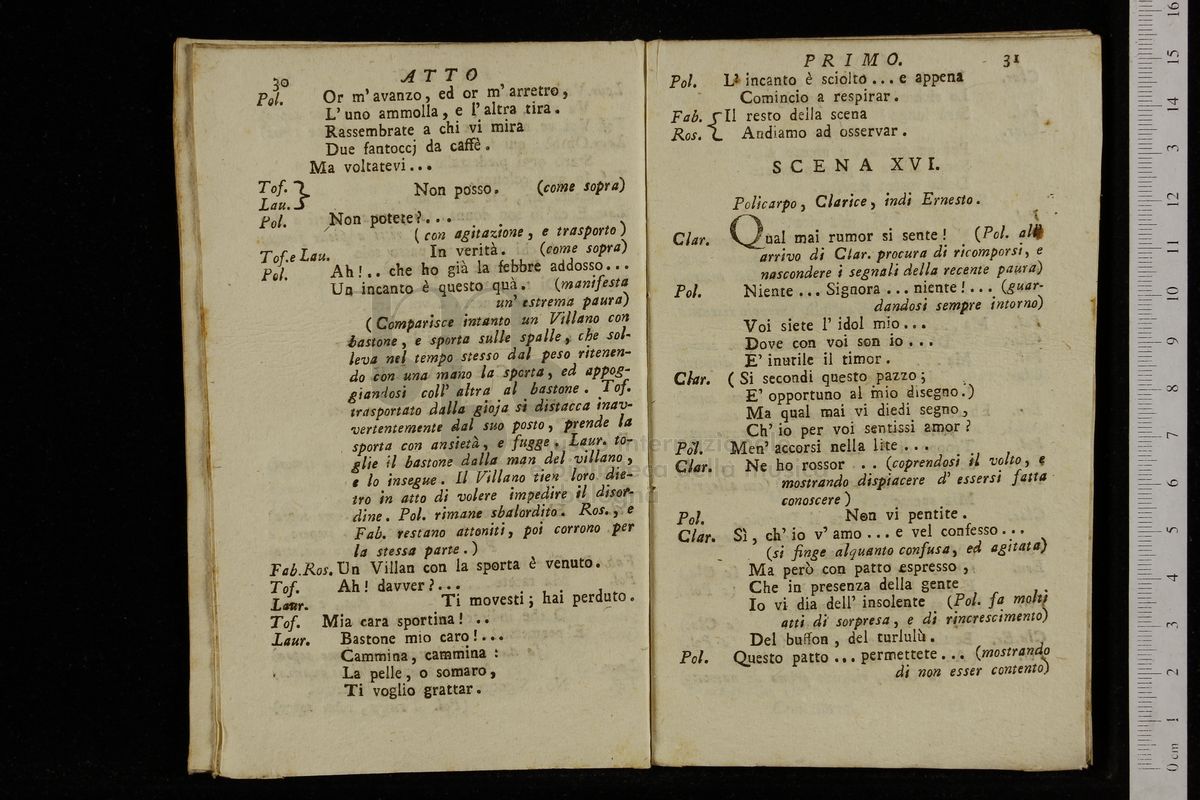 30
ATTO
Pol. Or m'avanzo, ed or m'arretro,
L'uno ammolla, e l'altra tira.
Rassembrate a chi vi mira
Due fantoccj da caffè.
Ma voltatevi...
Tof. } Non posso. (come sopra)
Lau. }
Pol. Non potete?...
(con agitazione, e trasporto)
Tof.e Lau. In verità. (come sopra)
Pol. Ah!.. che ho già la febbre addosso...
Un incanto è questo quà. (manifesta
un' estrema paura)
(Comparisce intanto un Villano con
bastone, e sporta sulle spalle, che sol-
leva nel tempo stesso dal peso ritenen-
do con una mano la sporta, ed appog-
giandosi coll' altra al bastone. Tof.
trasportato dalla gioja si distacca inav-
vertentemente dal suo posto, prende la
sporta con ansietà, e fugge. Laur. to-
glie il bastone dalla man del villano,
e lo insegue. Il Villano tien loro die-
tro in atto di volere impedire il disor-
dine. Pol. rimane sbalordito. Ros., e
Fab. restano attoniti, poi corrono per
la stessa parte.)
Fab.Ros. Un Villan con la sporta è venuto.
Tof. Ah! davver?...
Laur. Ti movesti; hai perduto.
Tof. Mia cara sportina! ..
Laur. Bastone mio caro!...
Cammina, cammina:
La pelle, o somaro,
Ti voglio grattar.
PRIMO. 31
Pol. L'incanto è sciolto... e appena
Comincio a respirar.
Fab. { Il resto della scena
Ros. { Andiamo ad osservar.
SCENA XVI.
Policarpo, Clarice, indi Ernesto.
Clar. Qual mai rumor si sente! (Pol. all'
arrivo di Clar. procura di ricomporsi, e
nascondere i segnali della recente paura)
Pol. Niente... Signora... niente!... (guar-
dandosi sempre intorno)
Voi siete l'idol mio...
Dove con voi son io...
E' inutile il timor.
Clar. (Si secondi questo pazzo;
E' opportuno al mio disegno.)
Ma qual mai vi diedi segno,
Ch' io per voi sentissi amor?
Pol. Men' accorsi nella lite...
Clar. Ne ho rossor .. (coprendosi il volto, e
mostrando dispiacere d' essersi fatta
conoscere)
Pol. Non vi pentite.
Clar. Sì, ch' io v' amo... e vel confesso...
(si finge alquanto confusa, ed agitata)
Ma però con patto espresso,
Che in presenza della gente
Io vi dia dell' insolente (Pol. fa molti
atti di sorpresa, e di rincrescimento)
Del buffon, del turlulù.
Pol. Questo patto... permettete... (mostrando
di non esser contento)